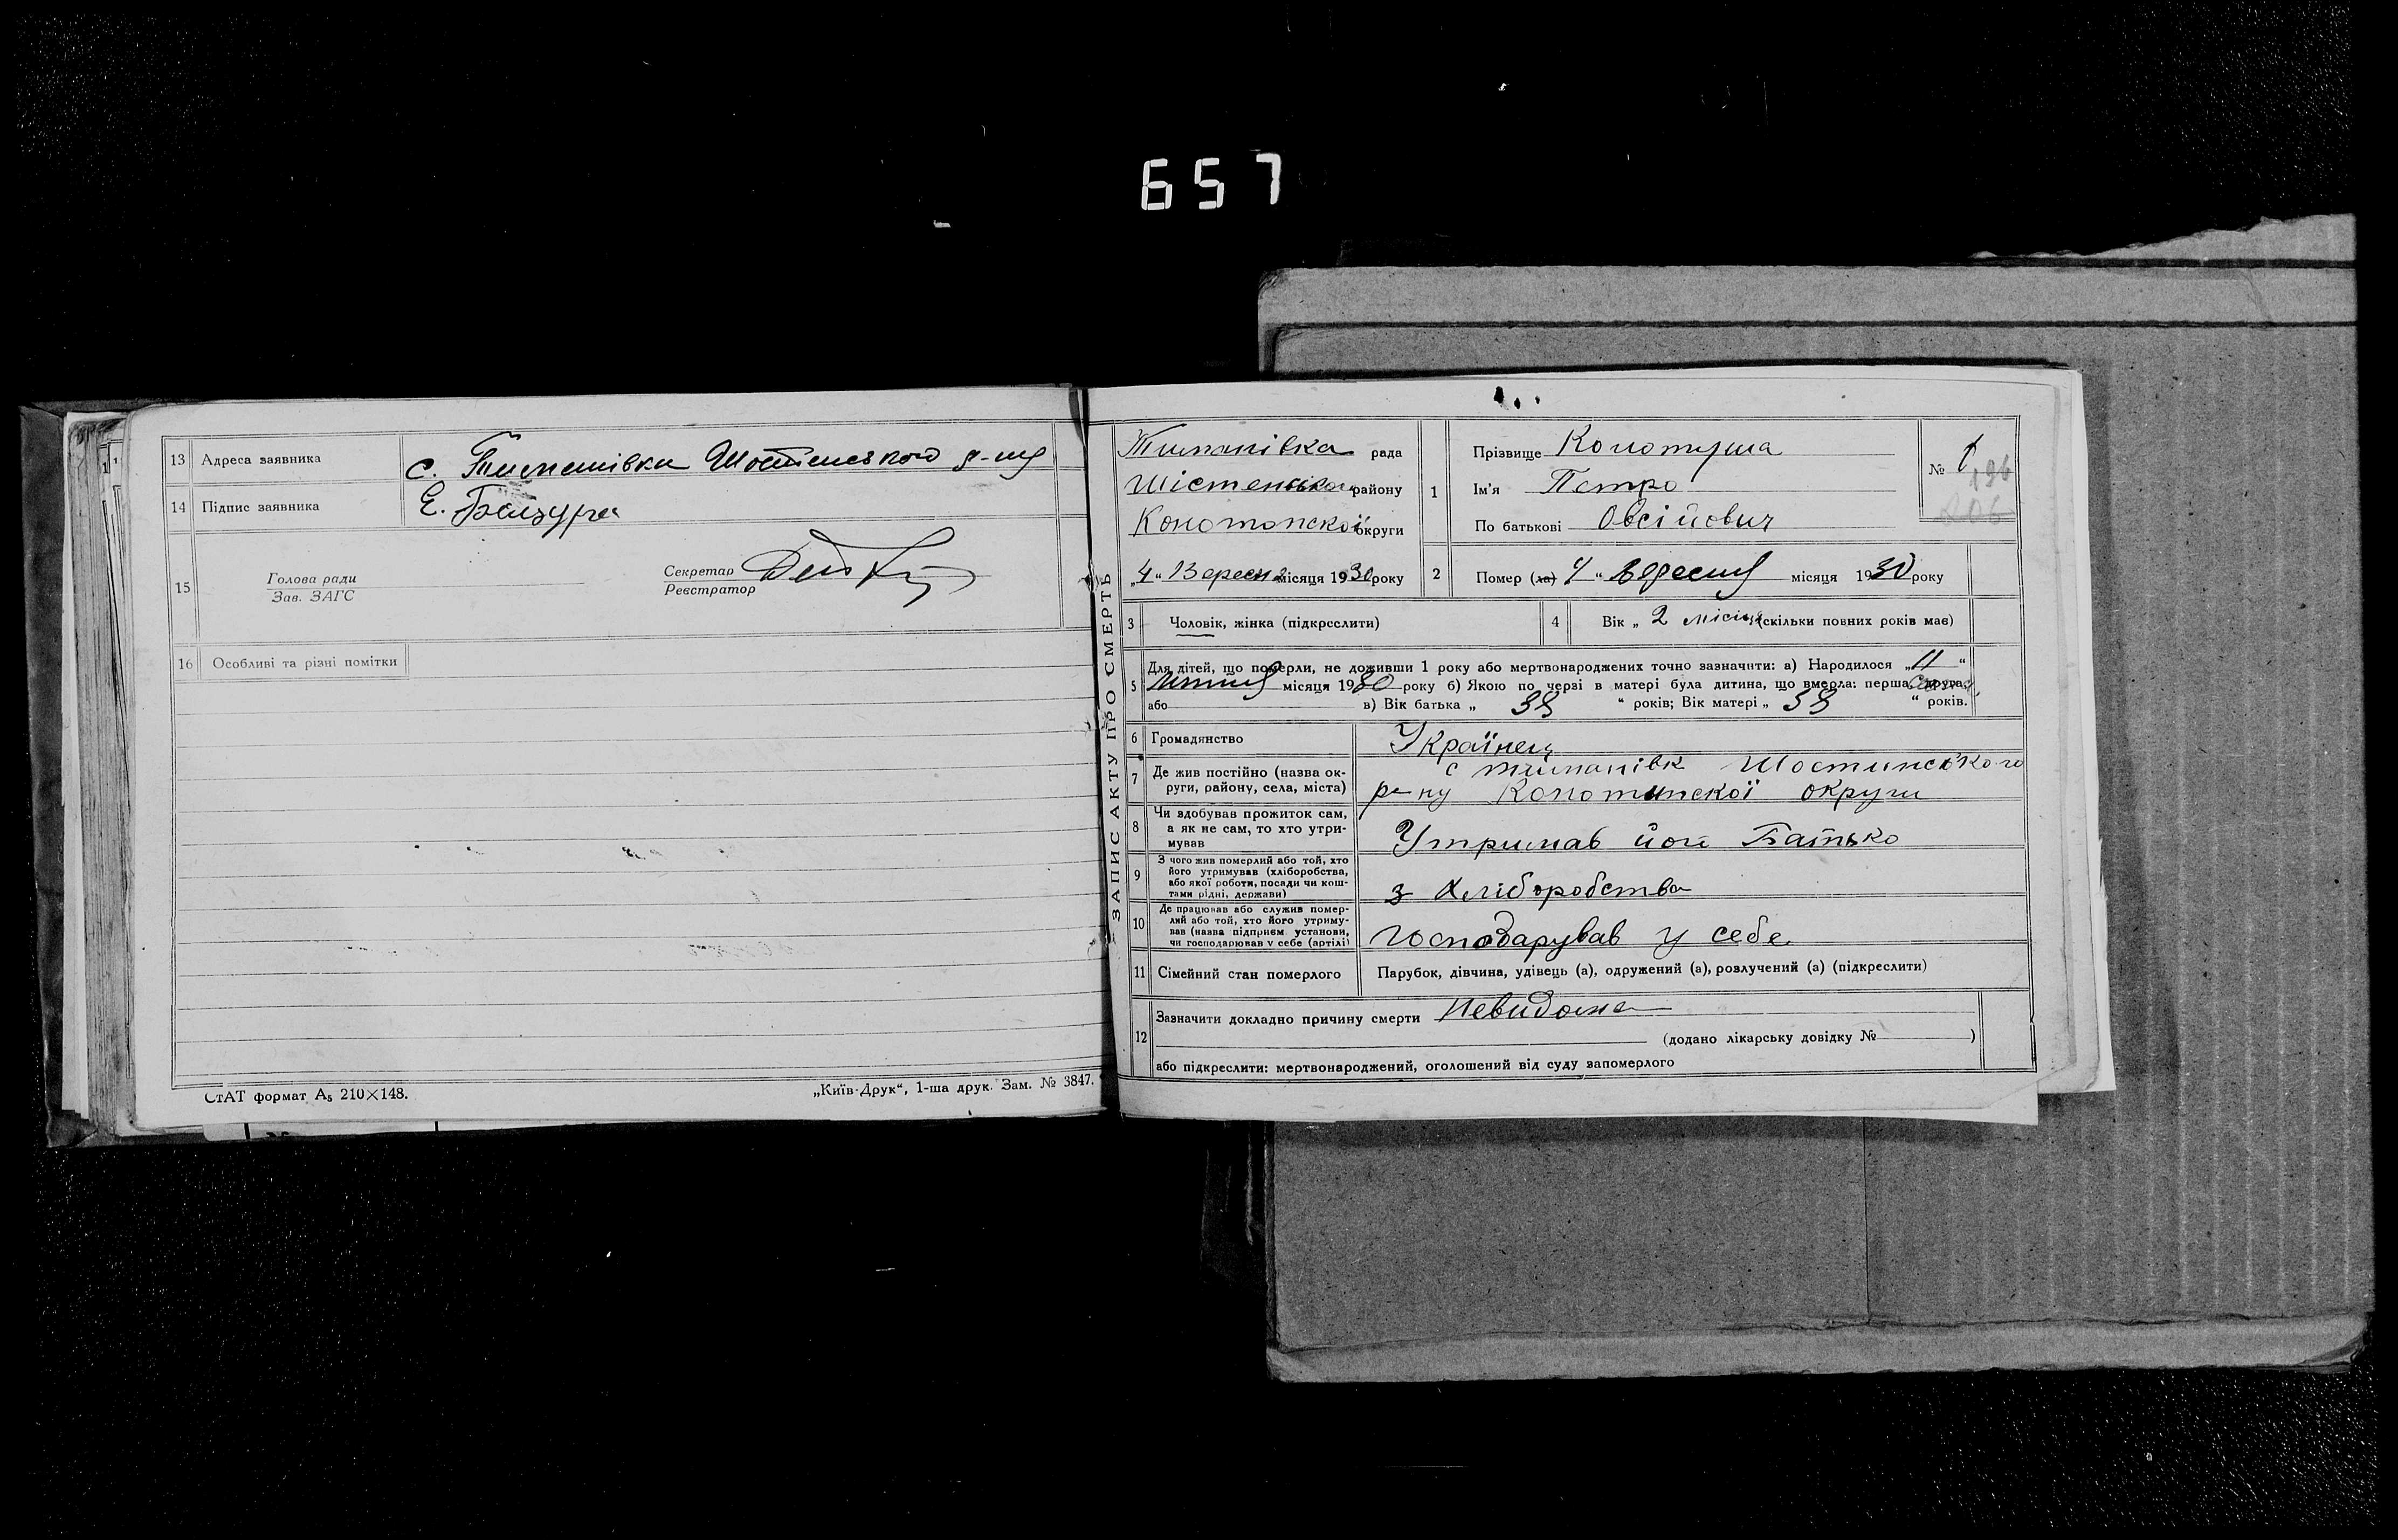 657
13 Адреса заявника с. Тиманівка Шостенського р-ну
14 Підпис заявника Є.
15 Голова ради
Зав. ЗАГС
Секретар
Реєстратор
16 Особливі та різні помітки
СтАТ формат А₅ 210×148.
„Київ-Друк“, 1-ша друк. Зам. № 3847.
ЗАПИС АКТУ ПРО СМЕРТЬ
Тиманівка рада
району
Конотопскої округи
„4“ Вересня місяця 1930 року
1 Прізвище Колотуша
Ім'я Петро
По батькові Овсійович
№ 1
196
206
2 Помер (ла) 4 “ вересня місяця 1930 року
3 Чоловік, жінка (підкреслити)
4 Вік „ 2 місяця (скільки повних років має)
5 Для дітей, що померли, не доживши 1 року або мертвонароджених точно зазначити: а) Народилося „11“
липня місяця 1930 року б) Якою по черзі в матері була дитина, що вмерла: перша, друга,
або в) Вік батька „ 38 “ років; Вік матері „ 38 “ років.
6 Громадянство Українец
7 Де жив постійно (назва ок-
руги, району, села, міста)
с Тиманівк Шостинського
ра-ну округи
8 Чи здобував прожиток сам,
а як не сам, то хто утри-
мував
Утримав Батько
9 З чого жив померлий або той, хто
його утримував (хліборобства,
або якої роботи, посади чи кош-
тами рідні, держави)
з Хліборобства
10 Де працював або служив помер-
лий або той, хто його утриму-
вав (назва підприєм. установи,
чи господарював у себе (артілі)
Господарував у себе
11 Сімейний стан померлого Парубок, дівчина, удівець (а), одружений (а), розлучений (а) (підкреслити)
12 Зазначити докладно причину смерти Невидома
(додано лікарську довідку № )
або підкреслити: мертвонароджений, оголошений від суду запомерлого